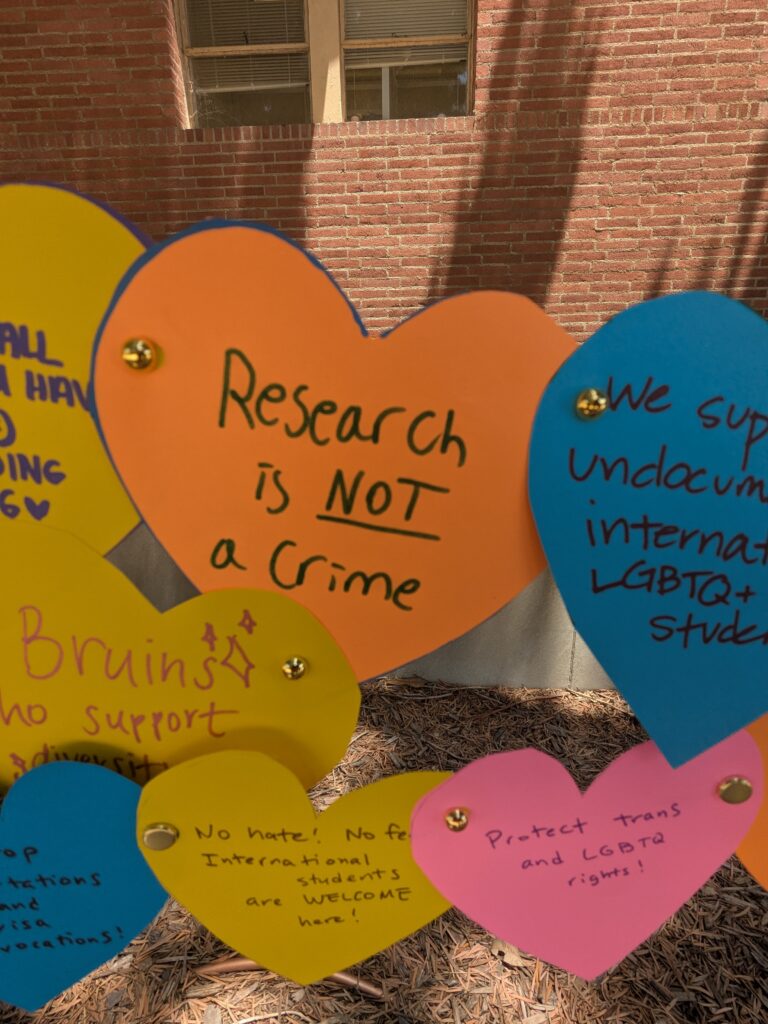 ALL
HAV
DING
Research
is NOT
a Crime
We sup
undocum
internat
LGBTQ+
stude
Bruins
ho support
diversity
op
tations
and
visa
vocations!
No hate! No fe
International
students
are WELCOME
here!
Protect trans
and LGBTQ
rights!